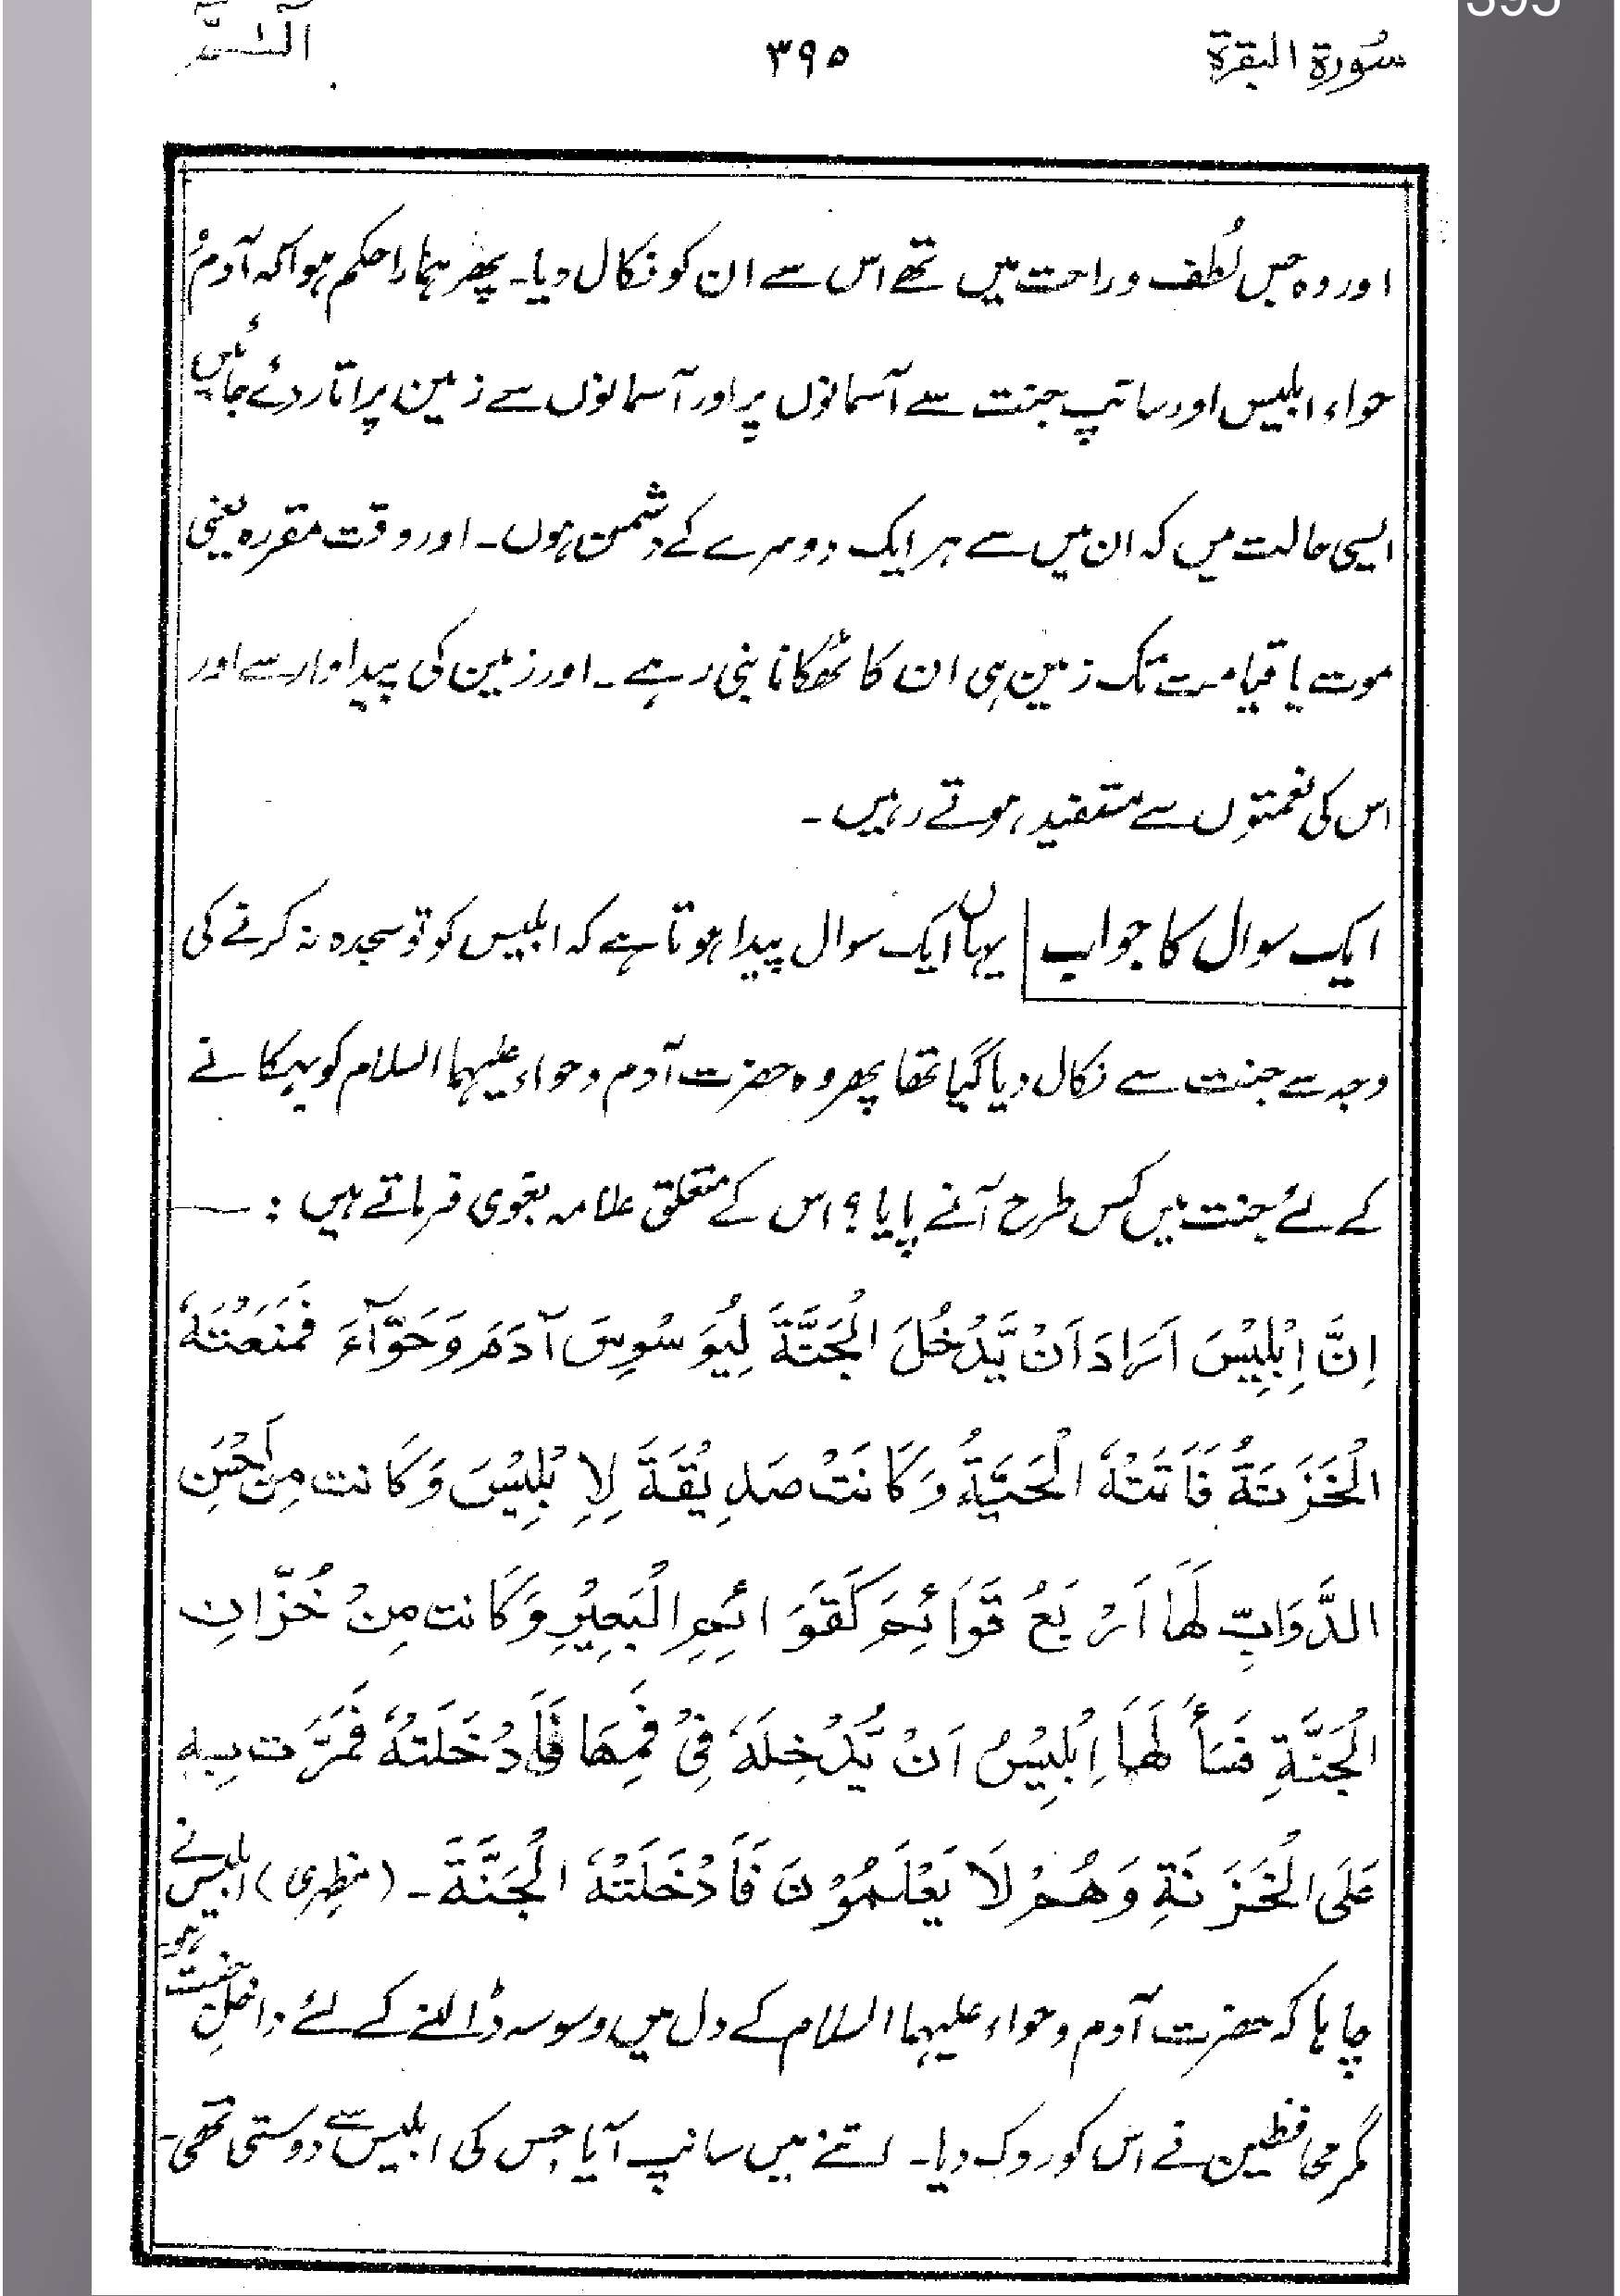 395
سُورة البقرة ۳۹۵ الٓـمّٓ
اور وہ جس لُطف و راحت میں تھے اس سے ان کو نکال دیا۔ پھر ہمارا حکم ہوا کہ آدمؑ
حواء ابلیس اور سانپ جنت سے آسمانوں پر اور آسمانوں سے زمین پر اتار دئے جائیں
ایسی حالت میں کہ ان میں سے ہر ایک دوسرے کے دشمن ہوں۔ اور وقت مقررہ یعنی
موت یا قیامت تک زمین ہی ان کا ٹھکانا بنی رہے۔ اور زمین کی پیداوار سے اور
اس کی نعمتوں سے مستفید ہوتے رہیں۔
ایک سوال کا جواب یہاں ایک سوال پیدا ہوتا ہے کہ ابلیس کو تو سجدہ نہ کرنے کی
وجہ سے جنت سے نکال دیا گیا تھا پھر وہ حضرت آدم و حواء علیہما السلام کو بہکانے
کے لئے جنت میں کس طرح آنے پایا؟ اس کے متعلق علامہ بغوی فرماتے ہیں :—
اِنَّ اِبْلِيْسَ اَرَادَ اَنْ يَّدْخُلَ الْجَنَّةَ لِيُوَسْوِسَ آدَمَ وَحَوَّآءَ فَمَنَعَتْهُ
الْخَزَنَةُ فَاَتَتْهُ الْحَيَّةُ وَكَانَتْ صَدِيْقَةً لِاِبْلِيْسَ وَكَانت مِن اَحْسَنِ
الدَّوَابِّ لَهَا اَرْبَعُ قَوَائِمَ كَقَوَائِمِ الْبَعِيْرِ وَكَانت مِنْ خُزَّانِ
الْجَنَّةِ فَسَأَلَهَا اِبْلِيْسُ اَنْ يُّدْخِلَهُ فِیْ فَمِهَا فَاَدْخَلَتْهُ فَمَرَّت بِهِ
عَلَى الْخَزَنَةِ وَهُمْ لَا يَعْلَمُوْنَ فَاَدْخَلَتْهُ الْجَنَّةَ۔ (مظہری) ابلیس نے
چاہا کہ حضرت آدم و حواء علیہما السلام کے دل میں وسوسہ ڈالنے کے لئے داخلِ جنت ہو۔
مگر محافظین نے اس کو روک دیا۔ اتنے میں سانپ آیا جس کی ابلیس سے دوستی تھی۔